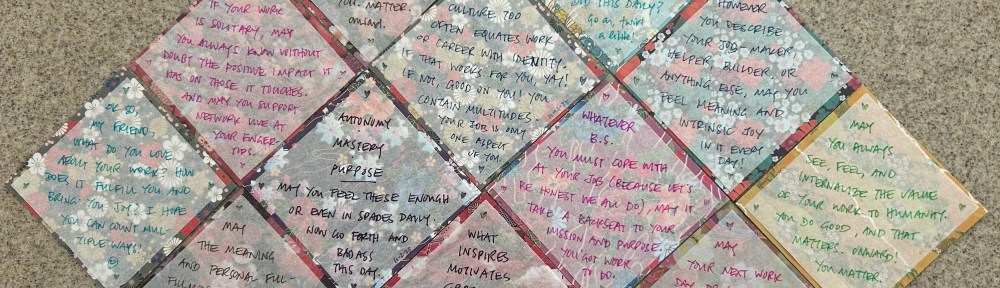 IF YOUR WORK
IS SOLITARY, MAY
YOU ALWAYS KNOW WITHOUT
DOUBT THE POSITIVE IMPACT IT
HAS ON THOSE IT TOUCHES.
AND MAY YOU SUPPORT
NETWORK LIVE AT
YOUR FINGER-
TIPS.
YOU. MATTER.
ONWARD.
CULTURE TOO
OFTEN EQUATES WORK
OR CAREER WITH IDENTITY.
IF THAT WORKS FOR YOU, YAY!
IF NOT, GOOD ON YOU! YOU
CONTAIN MULTITUDES.
YOUR JOB IS ONLY
ONE ASPECT
OF YOU.
DID THIS DAILY?
Go on, twirl
a little!
HOWEVER
YOU DESCRIBE
YOUR JOB - MAKER
HELPER, BUILDER, OR
ANYTHING ELSE, MAY YOU
FEEL MEANING AND
INTRINSIC JOY
IN IT EVERY
DAY!
OK SO,
MY FRIEND,
WHAT DO YOU LOVE
ABOUT YOUR WORK? HOW
DOES IT FULFILL YOU AND
BRING YOU JOY? I HOPE
YOU CAN COUNT MUL-
TIPLE WAYS.
AUTONOMY
MASTERY
PURPOSE
MAY YOU FEEL THESE ENOUGH
OR EVEN IN SPADES DAILY.
NOW GO FORTH AND
BADASS
THIS DAY.
WHATEVER
B.S.
YOU MUST COPE WITH
AT YOUR JOB (BECAUSE LET'S
BE HONEST WE ALL DO), MAY IT
TAKE A BACKSEAT TO YOUR
MISSION AND PURPOSE.
YOU GOT WORK
TO DO.
MAY
YOU ALWAYS
SEE, FEEL, AND
INTERNALIZE THE VALUE
OF YOUR WORK TO HUMANITY.
YOU DO GOOD, AND THAT
MATTERS. ONWARD!
YOU MATTER.
MAY
THE MEANING
AND PERSONAL FUL-
WHAT
INSPIRES
MOTIVATES
MAY
YOUR NEXT WORK